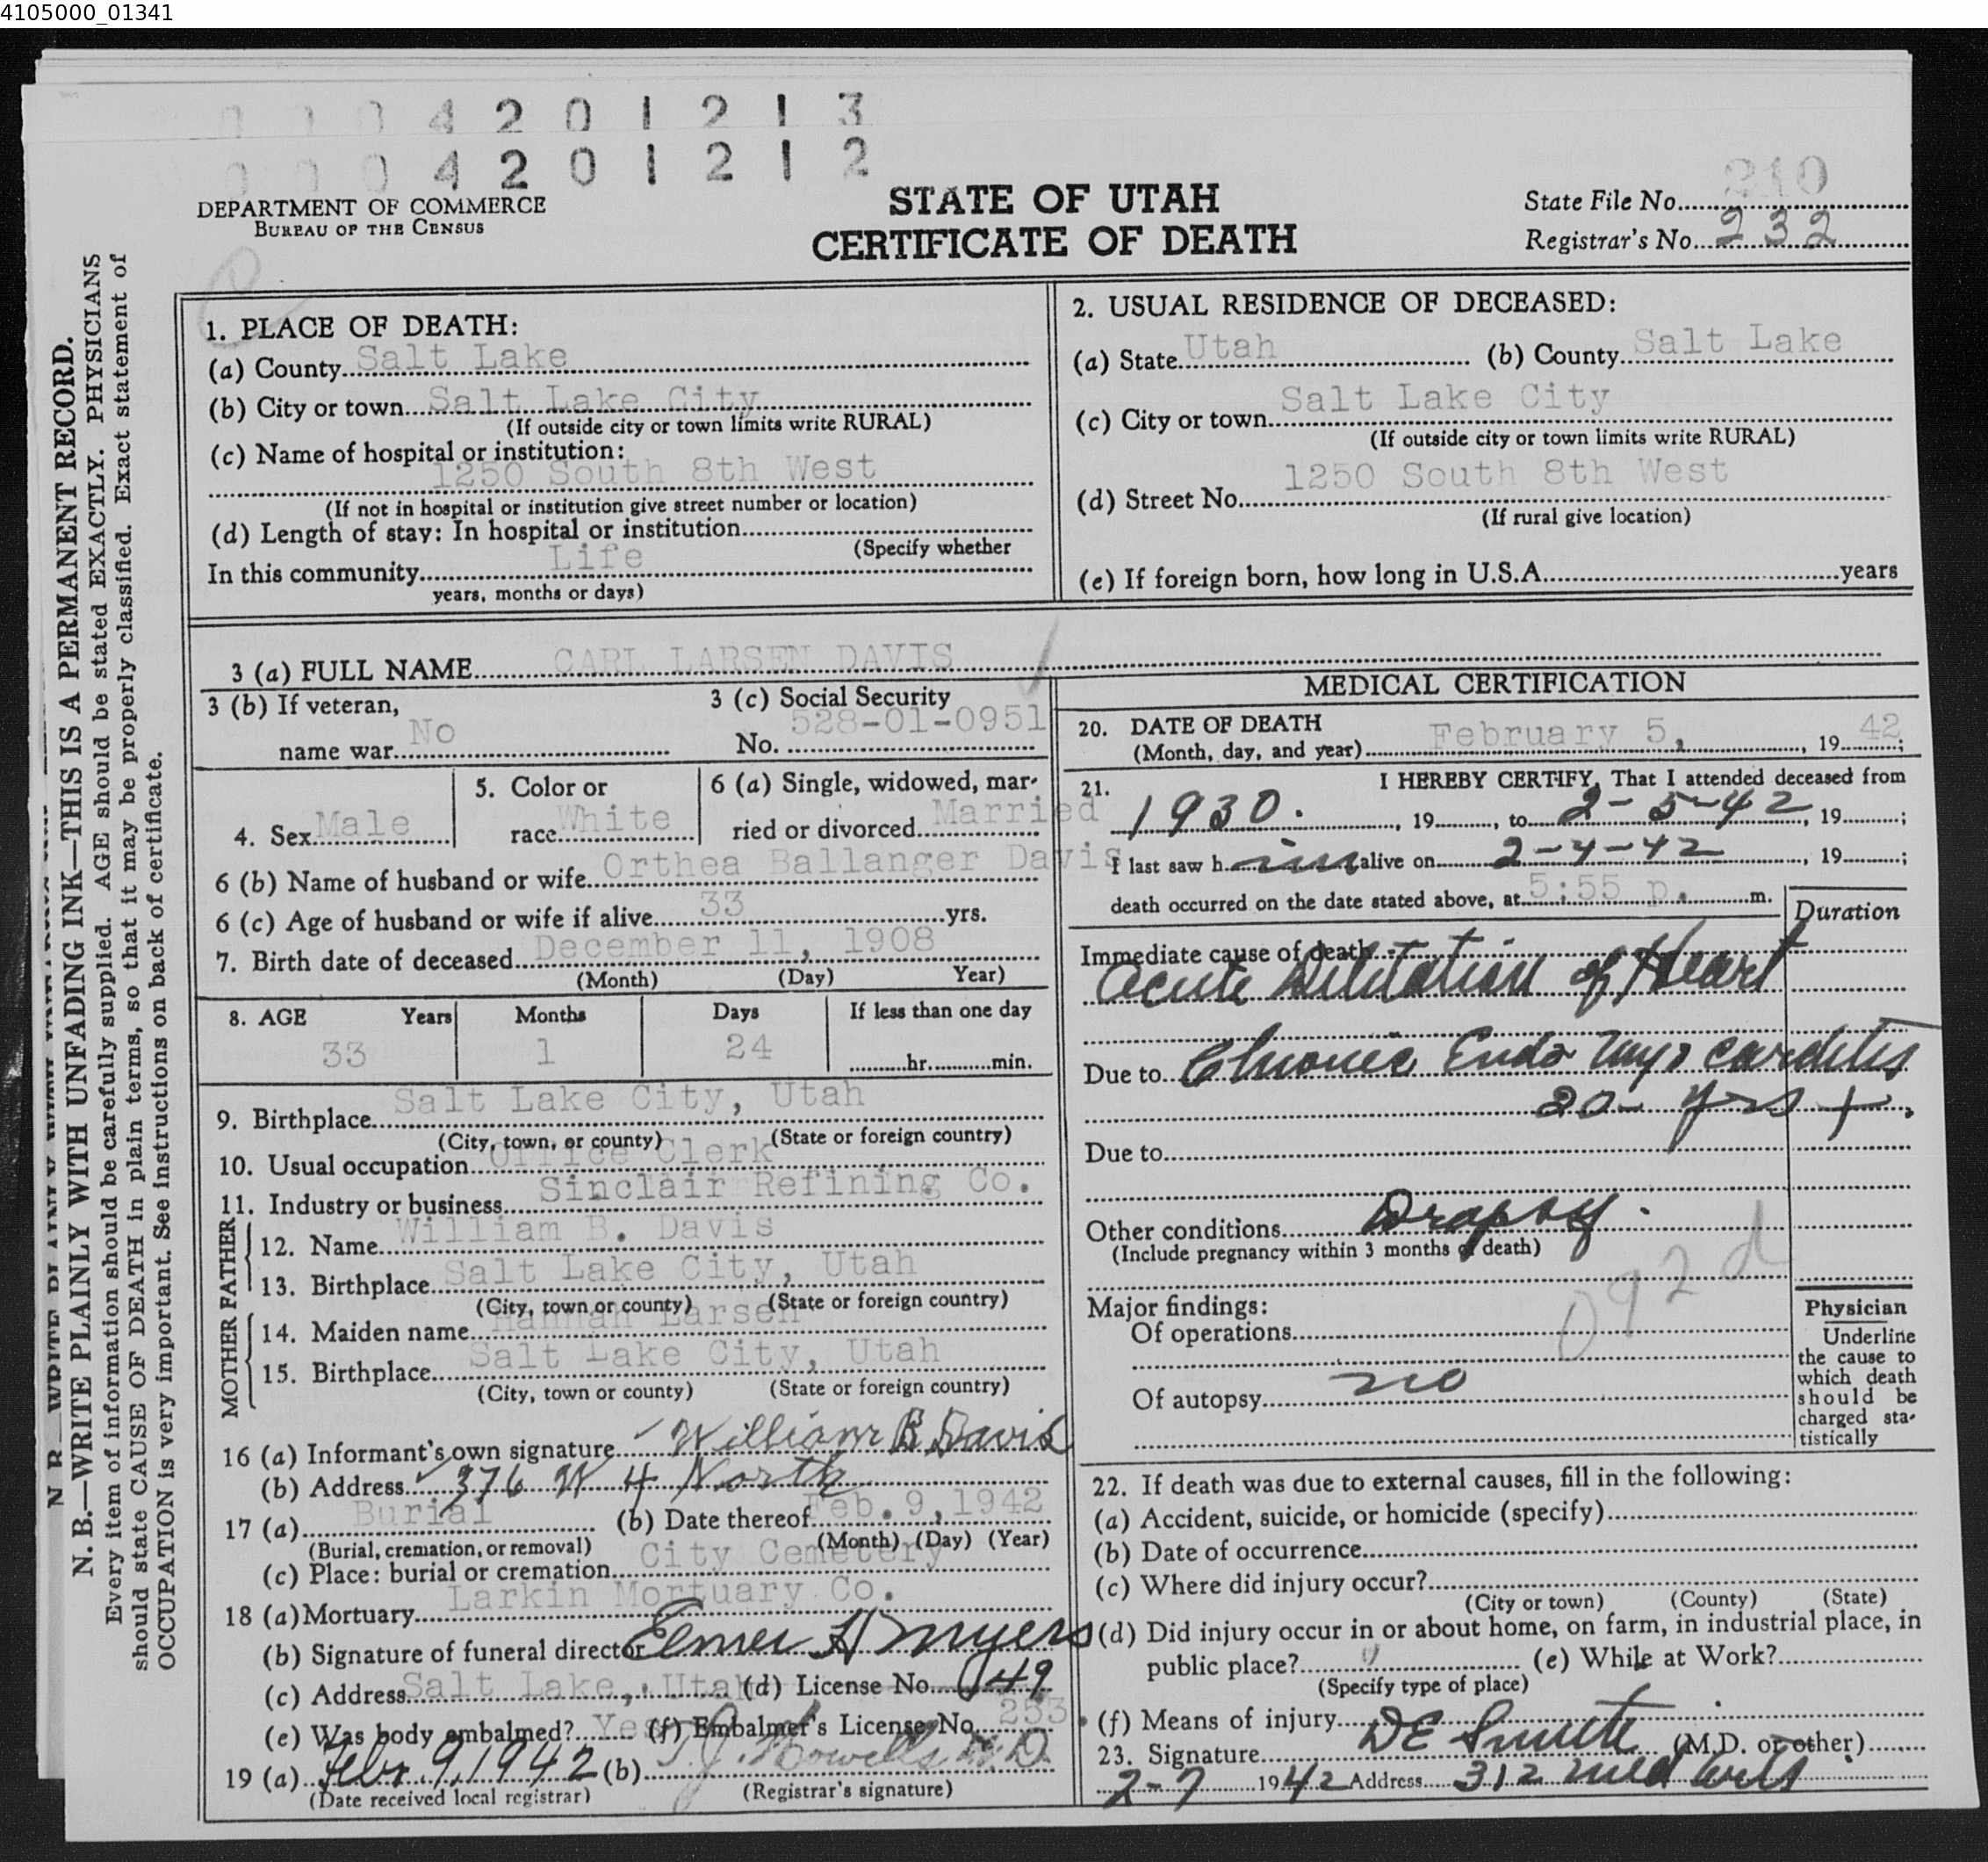 4105000_01341
4 2 0 1 2 1 3
4 2 0 1 2 1 2
DEPARTMENT OF COMMERCE
BUREAU OF THE CENSUS
STATE OF UTAH
CERTIFICATE OF DEATH
State File No. 210
Registrar's No. 232
N. B.—WRITE PLAINLY WITH UNFADING INK—THIS IS A PERMANENT RECORD.
Every item of information should be carefully supplied. AGE should be stated EXACTLY. PHYSICIANS
should state CAUSE OF DEATH in plain terms, so that it may be properly classified. Exact statement of
OCCUPATION is very important. See instructions on back of certificate.
1. PLACE OF DEATH:
(a) County Salt Lake
(b) City or town Salt Lake City
(If outside city or town limits write RURAL)
(c) Name of hospital or institution:
1250 South 8th West
(If not in hospital or institution give street number or location)
(d) Length of stay: In hospital or institution
(Specify whether
In this community Life
years, months or days)
2. USUAL RESIDENCE OF DECEASED:
(a) State Utah (b) County Salt Lake
(c) City or town Salt Lake City
(If outside city or town limits write RURAL)
(d) Street No. 1250 South 8th West
(If rural give location)
(e) If foreign born, how long in U.S.A. years
3 (a) FULL NAME CARL LARSEN DAVIS
3 (b) If veteran,
name war No
3 (c) Social Security
No. 528-01-0951
4. Sex Male
5. Color or
race White
6 (a) Single, widowed, mar-
ried or divorced Married
6 (b) Name of husband or wife Orthea Ballanger Davis
6 (c) Age of husband or wife if alive 33 yrs.
7. Birth date of deceased December 11, 1908
(Month) (Day) Year)
8. AGE Years Months Days If less than one day
33 1 24 hr. min.
9. Birthplace Salt Lake City, Utah
(City, town, or county) (State or foreign country)
10. Usual occupation Office Clerk
11. Industry or business Sinclair Refining Co.
FATHER
12. Name William B. Davis
13. Birthplace Salt Lake City, Utah
(City, town or county) (State or foreign country)
MOTHER
14. Maiden name Hannah Larsen
15. Birthplace Salt Lake City, Utah
(City, town or county) (State or foreign country)
16 (a) Informant's own signature William B Davis
(b) Address 376 W 4 North
17 (a) Burial (b) Date thereof Feb. 9, 1942
(Burial, cremation, or removal) (Month) (Day) (Year)
(c) Place: burial or cremation City Cemetery
18 (a) Mortuary Larkin Mortuary Co.
(b) Signature of funeral director Elmer H Myers
(c) Address Salt Lake, Utah (d) License No. 49
(e) Was body embalmed? Yes (f) Embalmer's License No. 253
19 (a) Febr. 9, 1942 (b) T. J. Howells M.D.
(Date received local registrar) (Registrar's signature)
MEDICAL CERTIFICATION
20. DATE OF DEATH
(Month, day, and year) February 5, , 19 42;
21. I HEREBY CERTIFY, That I attended deceased from
1930. , 19 , to 2-5-42, 19 ;
I last saw h im alive on 2-4-42, 19 ;
death occurred on the date stated above, at 5:55 p. m.
Duration
Immediate cause of death
Acute Dilitation of Heart
Due to Chronic Endo Myo carditis
20 yrs +.
Due to
Other conditions Dropsy.
(Include pregnancy within 3 months of death)
092d
Major findings:
Of operations
Of autopsy no
Physician
Underline
the cause to
which death
should be
charged sta-
tistically
22. If death was due to external causes, fill in the following:
(a) Accident, suicide, or homicide (specify)
(b) Date of occurrence
(c) Where did injury occur?
(City or town) (County) (State)
(d) Did injury occur in or about home, on farm, in industrial place, in
public place? (e) While at Work?
(Specify type of place)
(f) Means of injury
23. Signature DE Smith (M.D. or other)
2-7 1942 Address 312 Med Arts